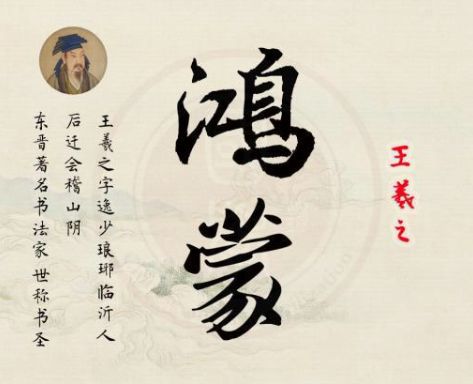 王羲之
鸿蒙
王羲之字逸少琅琊临沂人
后迁会稽山阴
东晋著名书法家世称书圣